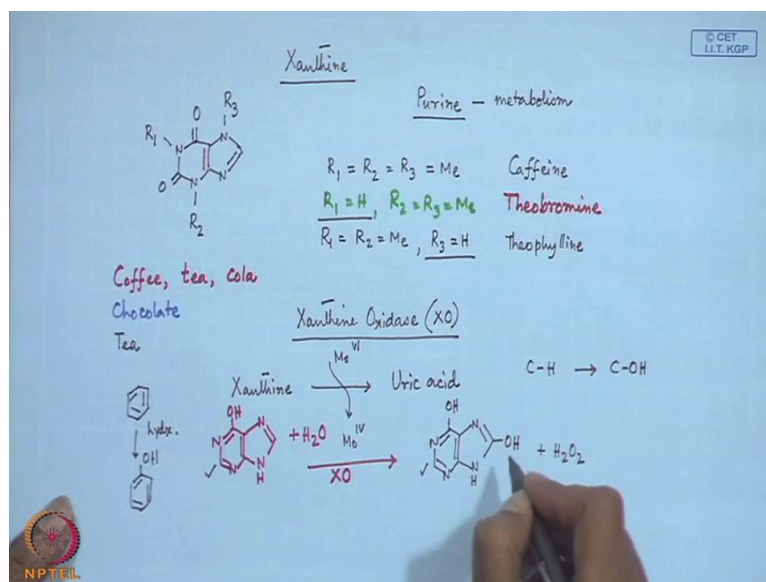 © CET
I.I.T. KGP
Xanthine
Purine – metabolism
R₃
O
N
R₁
N
O
N
N
R₂
R₁ = R₂ = R₃ = Me Caffeine
R₁ = H, R₂ = R₃ = Me Theobromine
R₁ = R₂ = Me, R₃ = H Theophylline
Coffee, tea, cola
Chocolate
Tea
Xanthine Oxidase (XO)
Mo VI
Xanthine → Uric acid
C–H → C–OH
Mo IV
hydrox.
OH
OH
N
N
N
N
H
+ H₂O
XO
OH
N
N
N
N
H
OH
+ H₂O₂
NPTEL